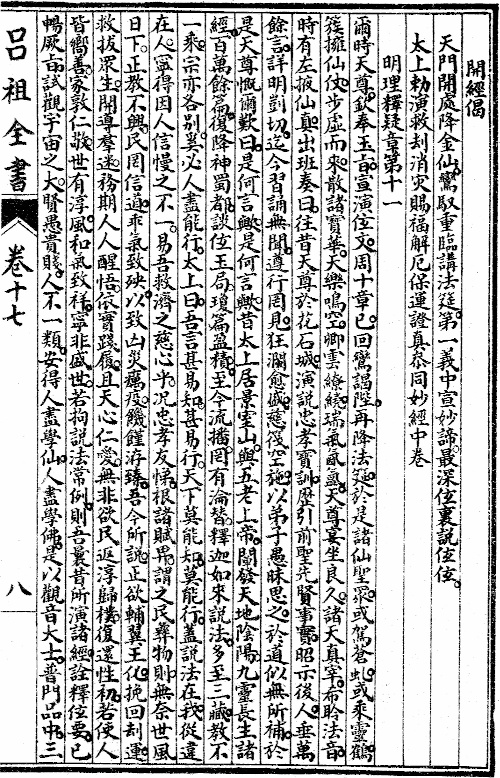 開經偈
天門開處降金仙鸞馭重臨講法筵第一義中宣妙諦最深位裏說位位
太上勅演救刦消灾賜福解厄保運證真泰同妙經中卷
明理釋疑章第十一
爾時天尊欽奉玉㫖宣演位文周十章已回鸞謁陛再降法筵於是諸仙聖眾或駕蒼虬或乘靈鶴
簇擁仙仗步虛而來散諸寶華天樂鳴空卿雲繚繞瑞氣氤氳天尊宴坐良久諸天真宰布聆法音
時有左掖仙真出班奏曰往昔天尊於花石城演說忠孝寶訓歷引前聖先賢事實昭示後人垂萬
餘言詳明剴切迄今習誦無聞遵行罔見狂瀾愈甚慈筏空施以弟子愚昧思之於道似無所補於
是天尊慨爾歎曰是何言歟是何言歟昔太上居景室山與五老上帝闡發天地陰陽九靈長主諸
經百萬餘篇復降神蜀都談位玉局瓊篇盈積至今流播罔有淪替釋迦如來說法多至三藏教不
一乘宗亦各別奚必人盡能行太上曰吾言甚易知甚易行天下莫能知莫能行蓋說法在我從違
在人寧得因人信慢之不一易吾救濟之慈心乎况忠孝友悌根諸賦畀謂之民彝物則無奈世風
日下正教不興民罔信道乖氣致殃以致凶災癘疫饑饉洊臻吾今所說正欲輔翼王化挽回刦運
救拔眾生開導羣迷務期人人醒悟依實踐履且天心仁愛無非欲民返淳歸樸復還性初若使人
皆嚮善家敦仁敬世有淳風和氣致祥寧非盛世若拘說法常例則吾曩昔所演諸經詮釋位要已
暢厥㫖試觀宇宙之大賢愚貴賤人不一類安得人盡學仙人盡學佛是以觀音大士普門品中三
呂祖全書
卷十七
八